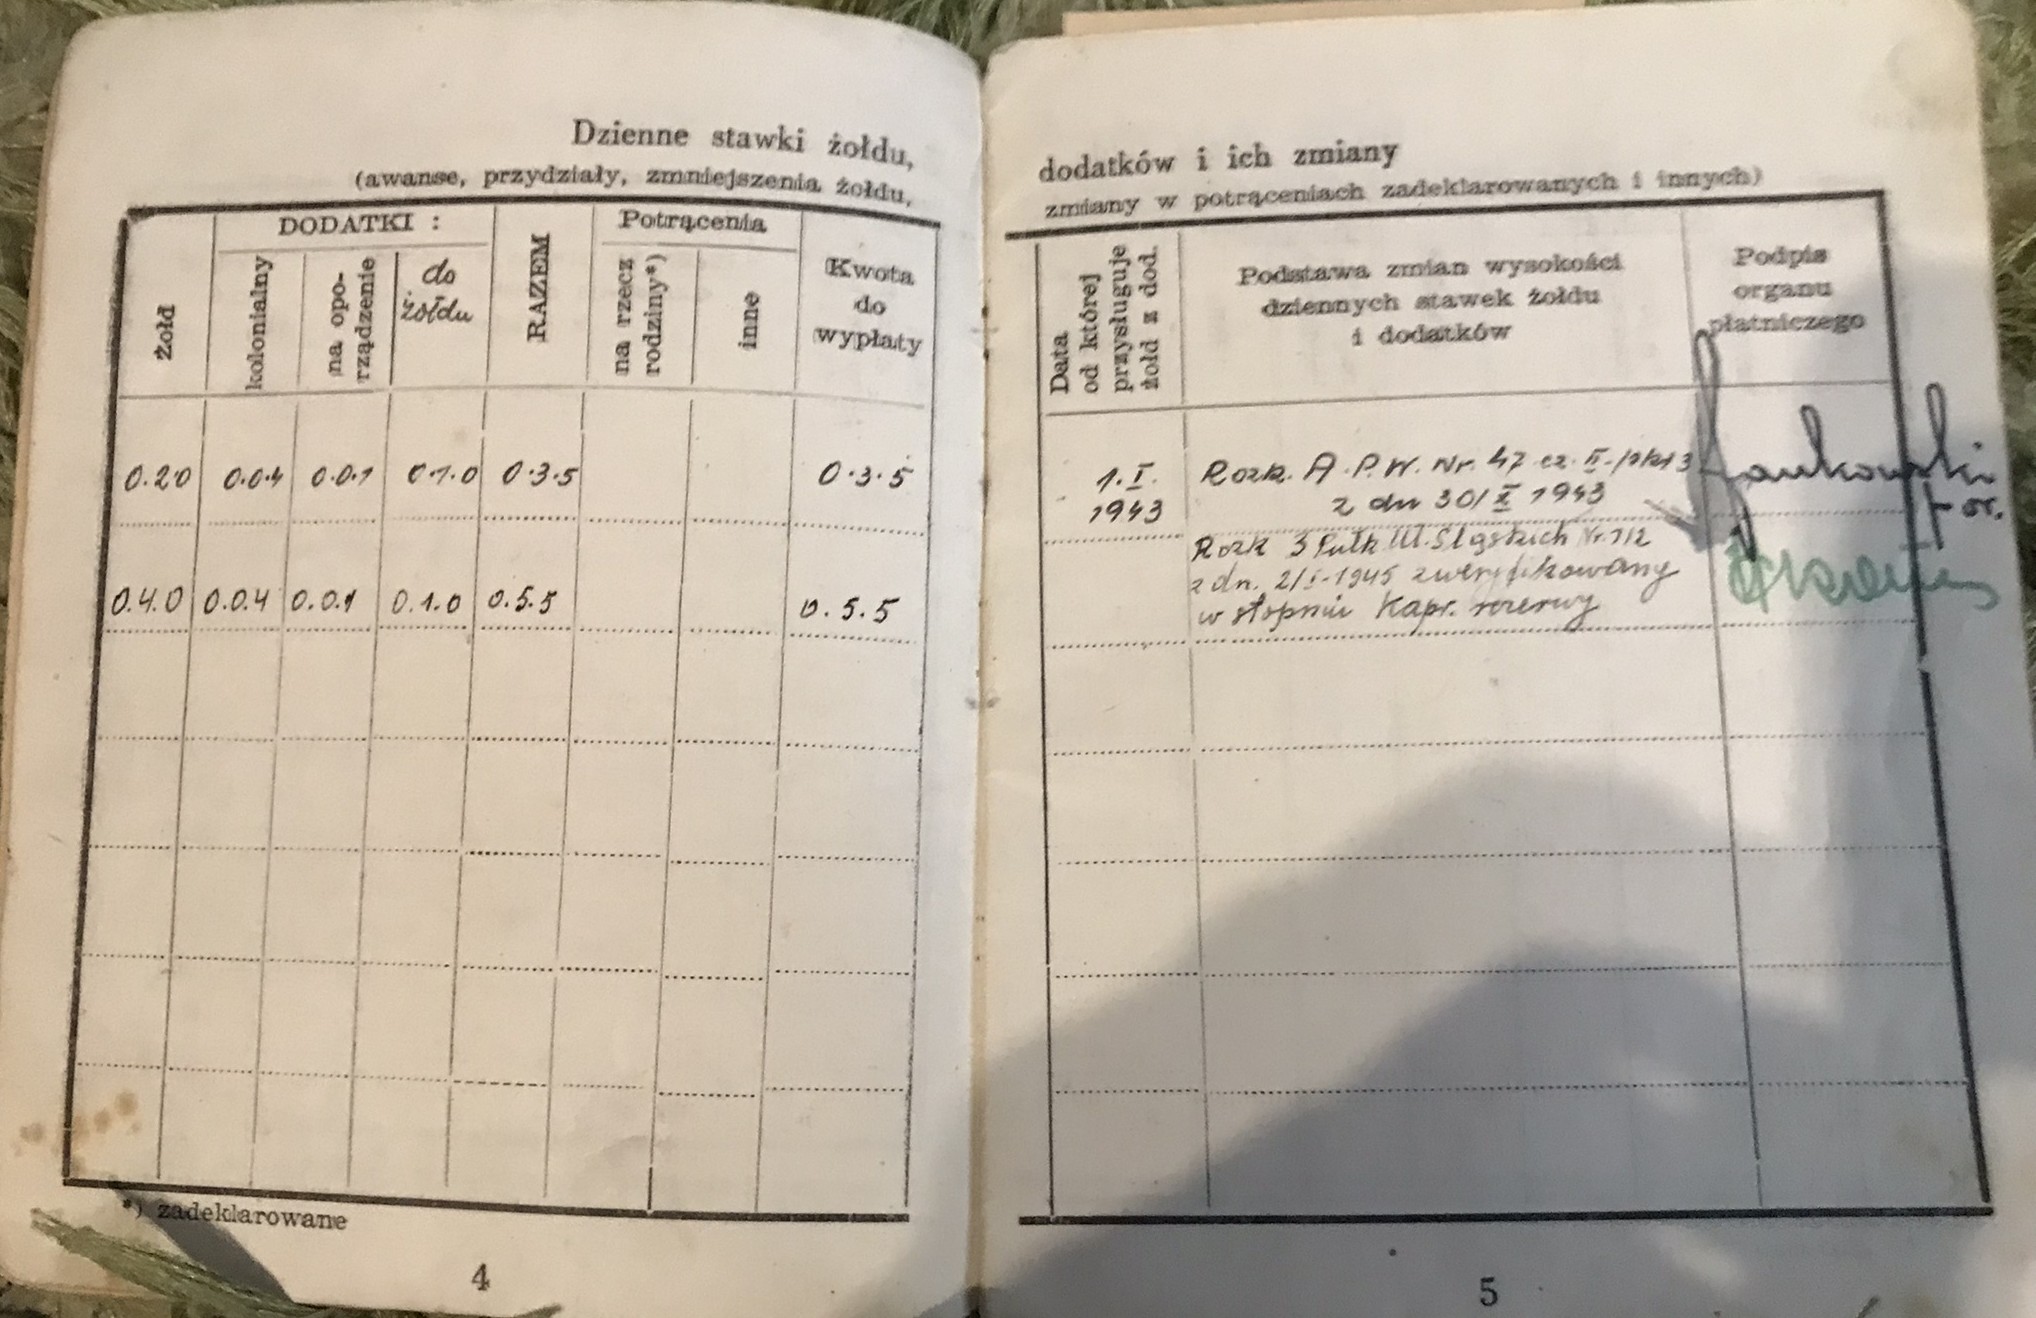 Dzienne stawki żołdu,
(awanse, przydziały, zmniejszenia żołdu,
DODATKI :
Potrącenia
Żołd
kolonialny
na opo-
rządzenie
do
żołdu
RAZEM
na rzecz
rodziny*)
inne
Kwota
do
wypłaty
0.20 0.0.4 0.0.1 0.1.0 0.3.5 0.3.5
0.4.0 0.0.4 0.0.1 0.1.0 0.5.5 0.5.5
*) zadeklarowane
4
dodatków i ich zmiany
zmiany w potrąceniach zadeklarowanych i innych)
Data
od której
przysługuje
żołd z dod.
Podstawa zmian wysokości
dziennych stawek żołdu
i dodatków
Podpis
organu
płatniczego
1.I.
1943
Rozk. A.P.W. Nr. 47 cz. II-/pkt 3
z dn 30/X 1943
Jankowski
por.
Rozk 3 Pułk Uł. Śląskich Nr. 1/2
z dn. 2/I-1945 zweryfikowany
w stopniu Kapr. rezerwy
5